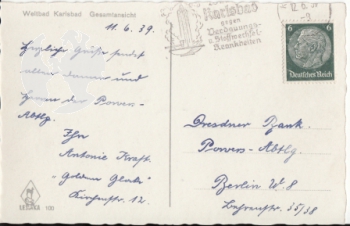 Weltbad Karlsbad Gesamtansicht
11.6.39.
Herzliche Grüße sendet
allen Damen und
Herren der Devisen-
Abtlg.
Ihr
Antonie Kraft
"Goldene Glocke"
Kirchenstr. 12
Karlsbad
gegen
Verdauungs-
u. Stoffwechsel-
Krankheiten
12.6.39
6 6
Deutsches Reich
Dresdner Bank
Devisen-
Abtlg.
Berlin W. 8
Behrenstr. 35/38